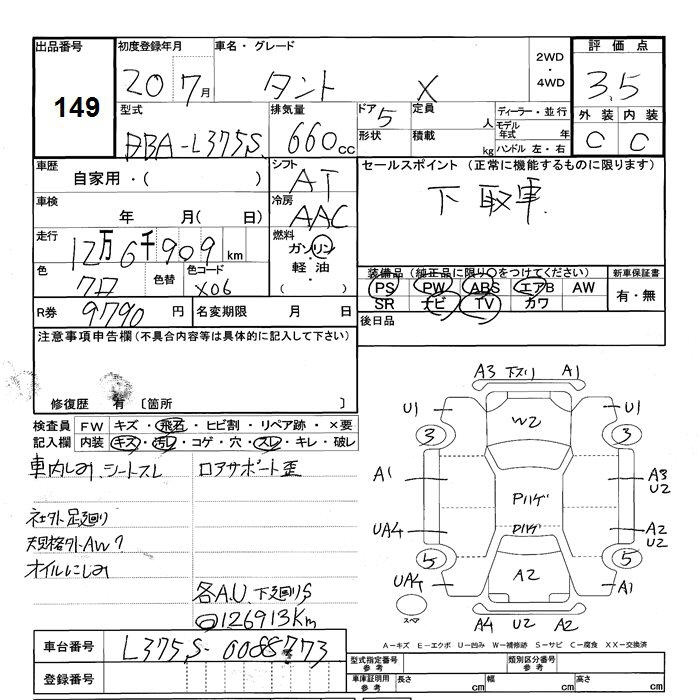 出品番号 初度登録年月 車名・グレード 2WD ・ 4WD 評価点
149 20 7月 タント X 3.5
型式 排気量 ドア 5 定員 人 ディーラー・並行 外装 内装
DBA-L375S 660cc 形状 積載 kg モデル年式 年 ハンドル 左・右 C C
車歴 シフト セールスポイント (正常に機能するものに限ります)
自家用・( ) AT 下取車
車検 冷房
年 月( 日) AAC
走行 燃料
12万6千909km ガソリン・軽油
色 色替 色コード 装備品 (純正品に限り○をつけてください) 新車保証書
クロ X06 PS PW ABS エアB AW 有・無
SR ナビ TV カワ
R券 9790円 名変期限 月 日 後日品
注意事項申告欄(不具合内容等は具体的に記入して下さい)
修復歴 有 〔箇所 〕
検査員記入欄 FW キズ・飛石・ヒビ割・リペア跡・×要
内装 キズ・汚レ・コゲ・穴・スレ・キレ・破レ
車内しみ、シートスレ ロアサポート歪
社外足廻り
規格外AW?
オイルにじみ
各A.U、下廻りS
126913Km
A3 下スリ A1
U1 W2 U1
3 3
A1 Pハゲ A3 U2
UA4 Pハゲ A2 U2
5 5
UA4 A2 A1
スペア A4 U2 A2
A-キズ E-エクボ U-凹み W-補修跡 S-サビ C-腐食 XX-交換済
車台番号 L375S-0088773
登録番号
型式指定番号 参考 類別区分番号 参考
車庫証明用 参考 長さ cm 幅 cm 高さ cm